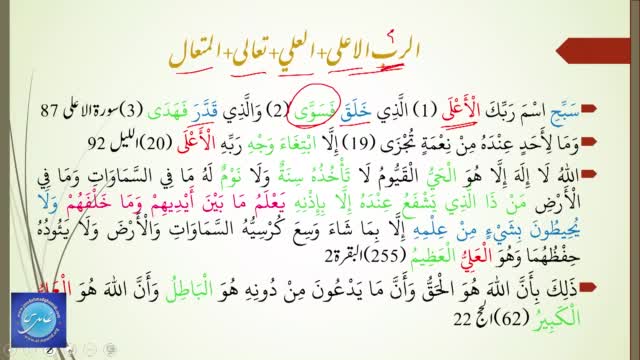 الرب الاعلى+العلي+تعالى+المتعال
سَبِّحِ اسْمَ رَبِّكَ الْأَعْلَى (1) الَّذِي خَلَقَ فَسَوَّى (2) وَالَّذِي قَدَّرَ فَهَدَى (3)سورة الاعلى 87
وَمَا لِأَحَدٍ عِنْدَهُ مِنْ نِعْمَةٍ تُجْزَى (19) إِلَّا ابْتِغَاءَ وَجْهِ رَبِّهِ الْأَعْلَى (20)الليل 92
اللهُ لَا إِلَهَ إِلَّا هُوَ الْحَيُّ الْقَيُّومُ لَا تَأْخُذُهُ سِنَةٌ وَلَا نَوْمٌ لَهُ مَا فِي السَّمَاوَاتِ وَمَا فِي
الْأَرْضِ مَنْ ذَا الَّذِي يَشْفَعُ عِنْدَهُ إِلَّا بِإِذْنِهِ يَعْلَمُ مَا بَيْنَ أَيْدِيهِمْ وَمَا خَلْفَهُمْ وَلَا
يُحِيطُونَ بِشَيْءٍ مِنْ عِلْمِهِ إِلَّا بِمَا شَاءَ وَسِعَ كُرْسِيُّهُ السَّمَاوَاتِ وَالْأَرْضَ وَلَا يَئُودُهُ
حِفْظُهُمَا وَهُوَ الْعَلِيُّ الْعَظِيمُ (255)البقرة2
ذَلِكَ بِأَنَّ اللهَ هُوَ الْحَقُّ وَأَنَّ مَا يَدْعُونَ مِنْ دُونِهِ هُوَ الْبَاطِلُ وَأَنَّ اللهَ هُوَ الْعَلِيُّ
الْكَبِيرُ (62)الحج 22